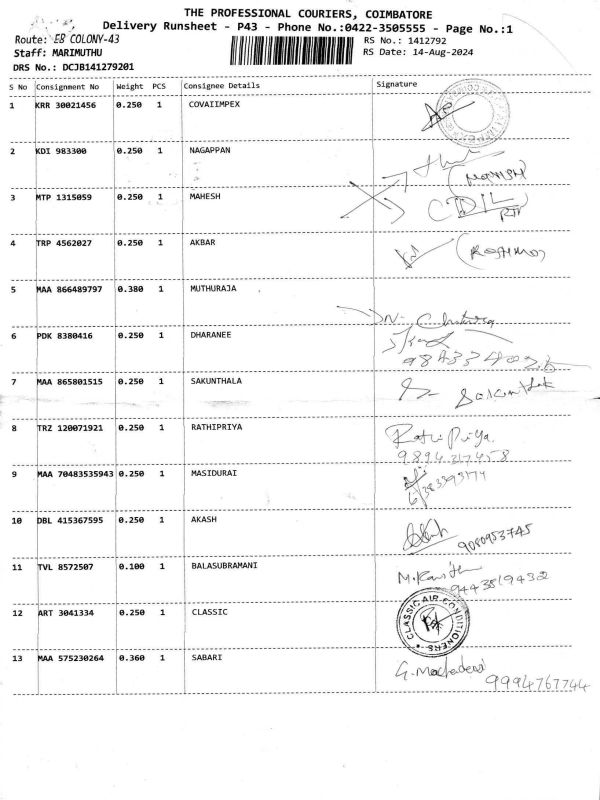 THE PROFESSIONAL COURIERS, COIMBATORE
Delivery Runsheet - P43 - Phone No.:0422-3505555 - Page No.:1
Route: EB COLONY-43
RS No.: 1412792
Staff: MARIMUTHU
RS Date: 14-Aug-2024
DRS No.: DCJB141279201
S No Consignment No Weight PCS Consignee Details Signature
1 KRR 30021456 0.250 1 COVAIIMPEX
2 KDI 983300 0.250 1 NAGAPPAN
3 MTP 1315059 0.250 1 MAHESH
4 TRP 4562027 0.250 1 AKBAR
5 MAA 866489797 0.380 1 MUTHURAJA
6 PDK 8380416 0.250 1 DHARANEE
7 MAA 865801515 0.250 1 SAKUNTHALA
Sakunthala
8 TRZ 120071921 0.250 1 RATHIPRIYA
Rathi Priya
9894217458
9 MAA 70483535943 0.250 1 MASIDURAI
10 DBL 415367595 0.250 1 AKASH
9080953745
11 TVL 8572507 0.100 1 BALASUBRAMANI
9443519432
12 ART 3041334 0.250 1 CLASSIC
CLASSIC AIR CONDITIONERS
13 MAA 575230264 0.360 1 SABARI
9994767744